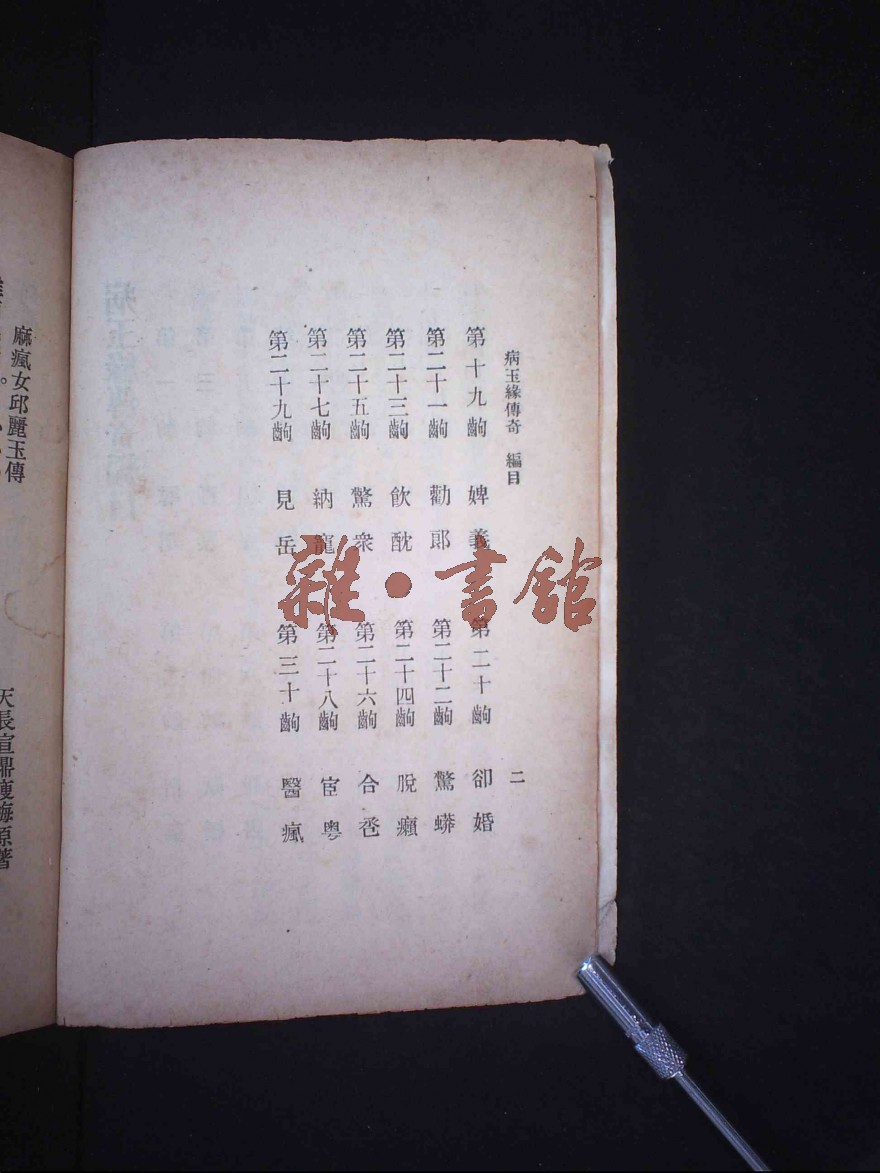 病玉緣傳奇　編目　二
第十九齣　婢義　第二十齣　卻婚
第二十一齣　勸郎　第二十二齣　驚蟒
第二十三齣　飲酖　第二十四齣　脫癩
第二十五齣　驚衆　第二十六齣　合巹
第二十七齣　納寵　第二十八齣　宦粵
第二十九齣　見岳　第三十齣　醫瘋
雜·書館
麻瘋女邱麗玉傳　天長宣鼎瘦梅原著